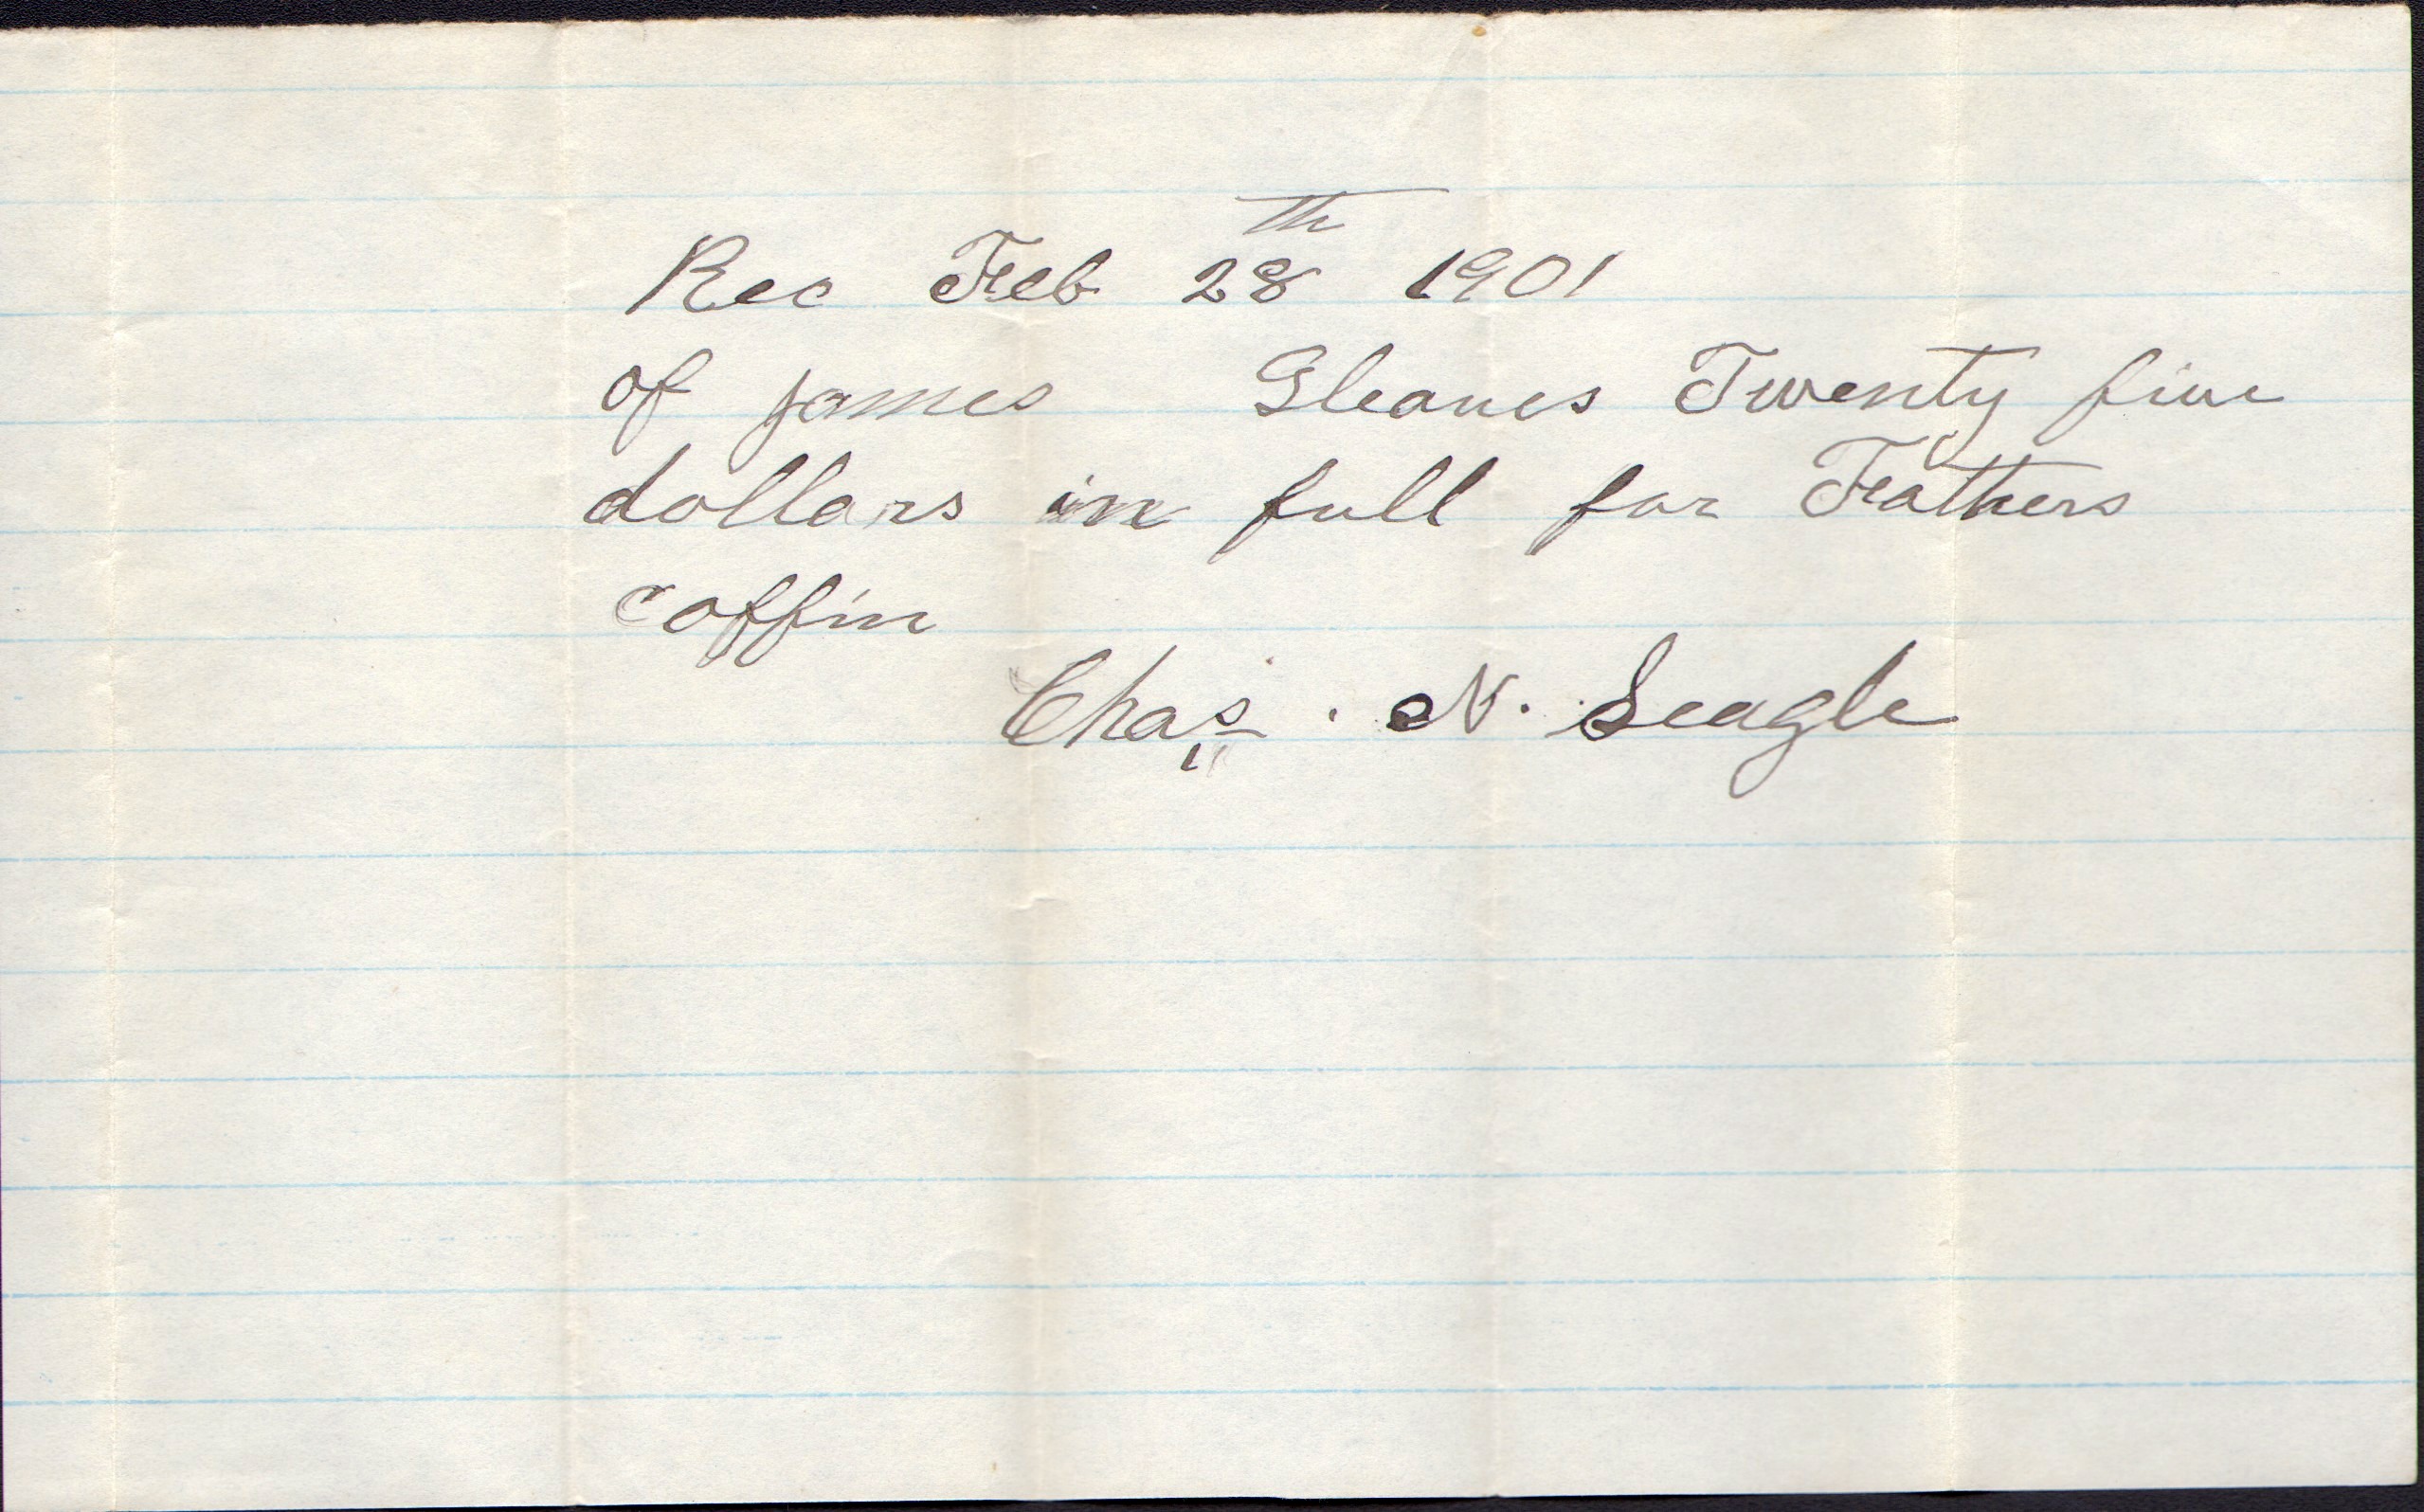 Rec Feb 28th 1901
of james Gleaves Twenty five
dollars in full for Fathers
coffin
Chas. N. Seagle